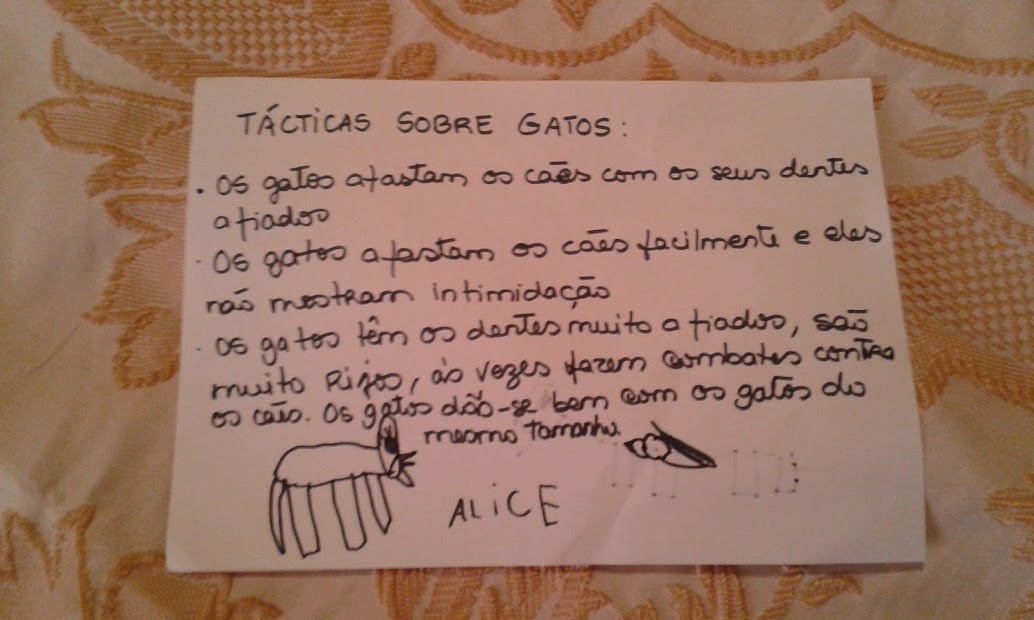 TÁCTICAS SOBRE GATOS:
• Os gatos afastam os cães com os seus dentes
afiados
• Os gatos afastam os cães facilmente e eles
não mostram intimidação
• Os gatos têm os dentes muito afiados, são
muito rijos, às vezes fazem combates contra
os cães. Os gatos dão-se bem com os gatos do
mesmo tamanho.
ALICE